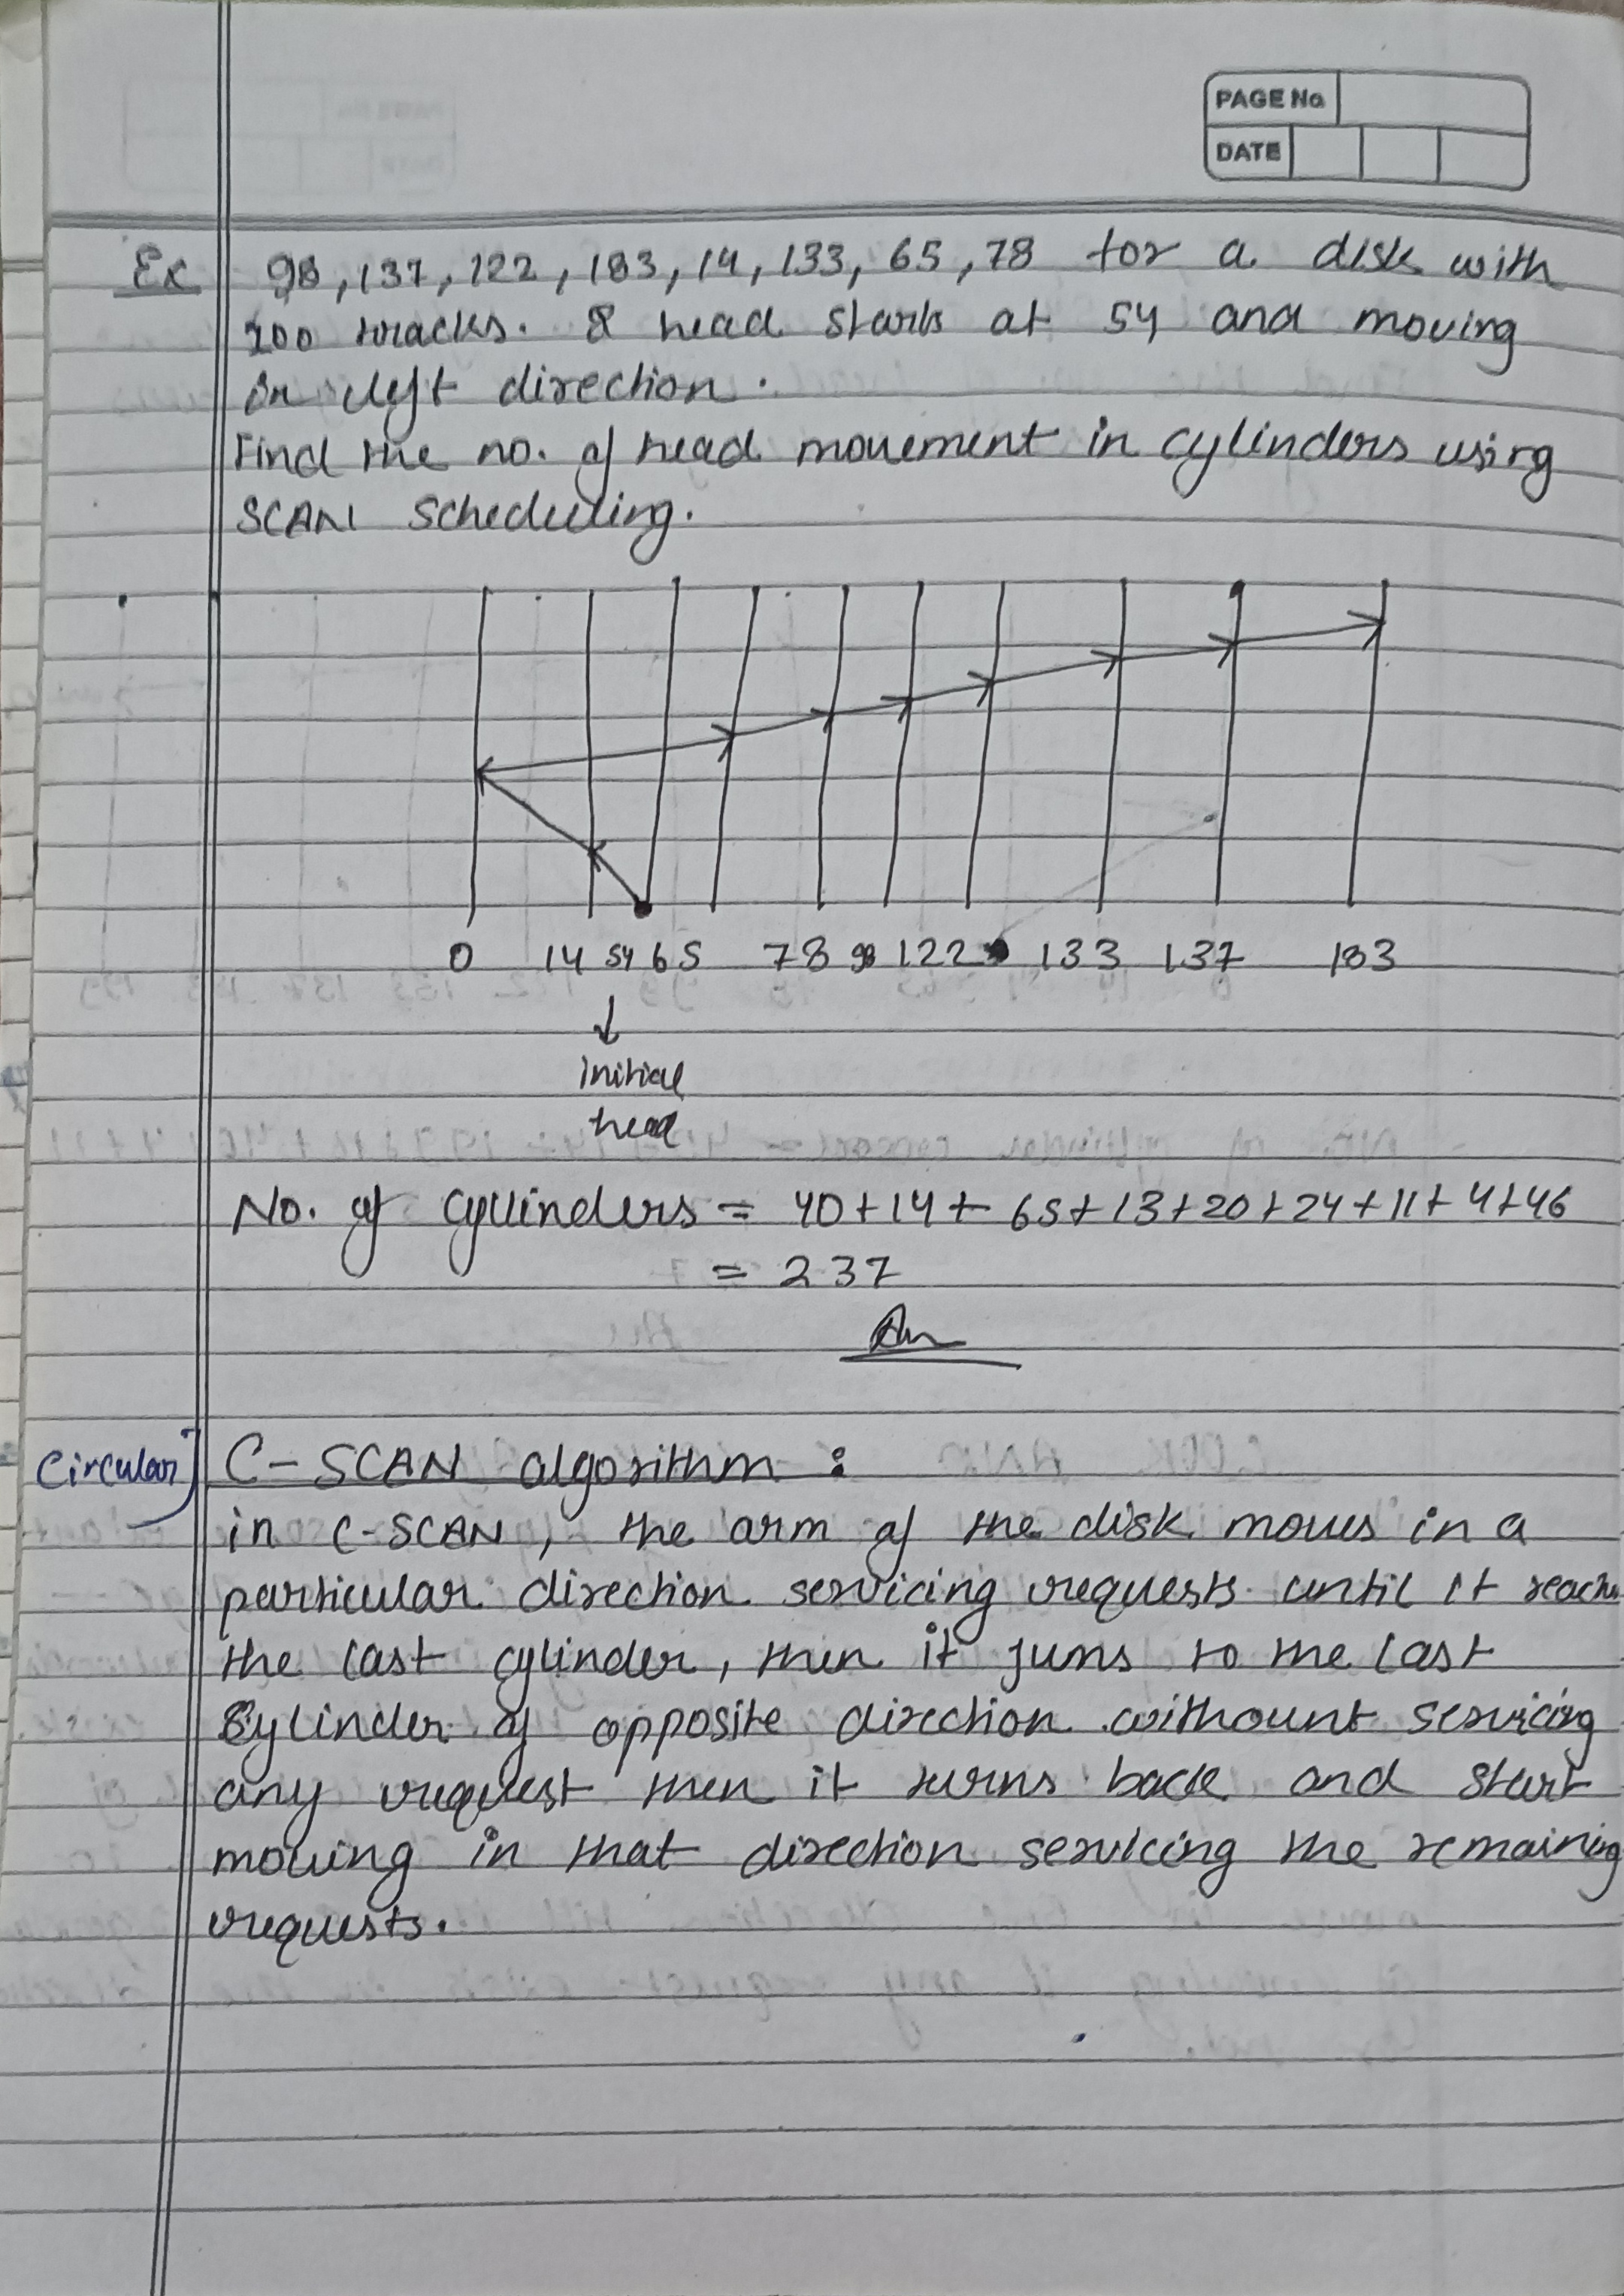 PAGE No.
DATE
Ex 98, 137, 122, 183, 14, 133, 65, 78 for a disk with
200 tracks. & head starts at 54 and moving
in left direction.
Find the no. of head movement in cylinders using
SCAN scheduling.
0 14 54 65 78 98 122 133 137 183
↓
initial
head
No. of cyllinders = 40+14+65+13+20+24+11+4+46
= 237
Ans
Circular] C-SCAN algorithm :
in C-SCAN, the arm of the disk moves in a
particular direction servicing requests until it reach
the last cylinder, then it jums to the last
Cylinder of opposite direction withount servicing
any request then it turns back and start
moving in that direction servicing the remaining
requests.